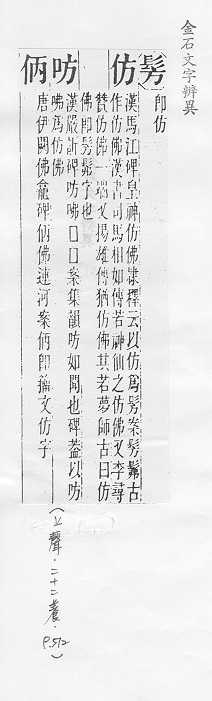 金石文字辨異
髣 即仿
仿 漢馬江碑皇神仿佛隸釋云以仿爲髣案髣髴古
作仿佛漢書司馬相如傳若神仙之仿佛又李尋
贊仿佛一端又揚雄傳猶仿佛其若夢師古曰仿
佛即髣髴字也
㕫 漢嚴訢碑㕫咈口口案集韻㕫如聞也碑蓋以㕫
咈爲仿佛
㑂 唐伊闕佛龕碑㑂佛連河案㑂即籀文仿字
(上聲.二十二養.P.512)